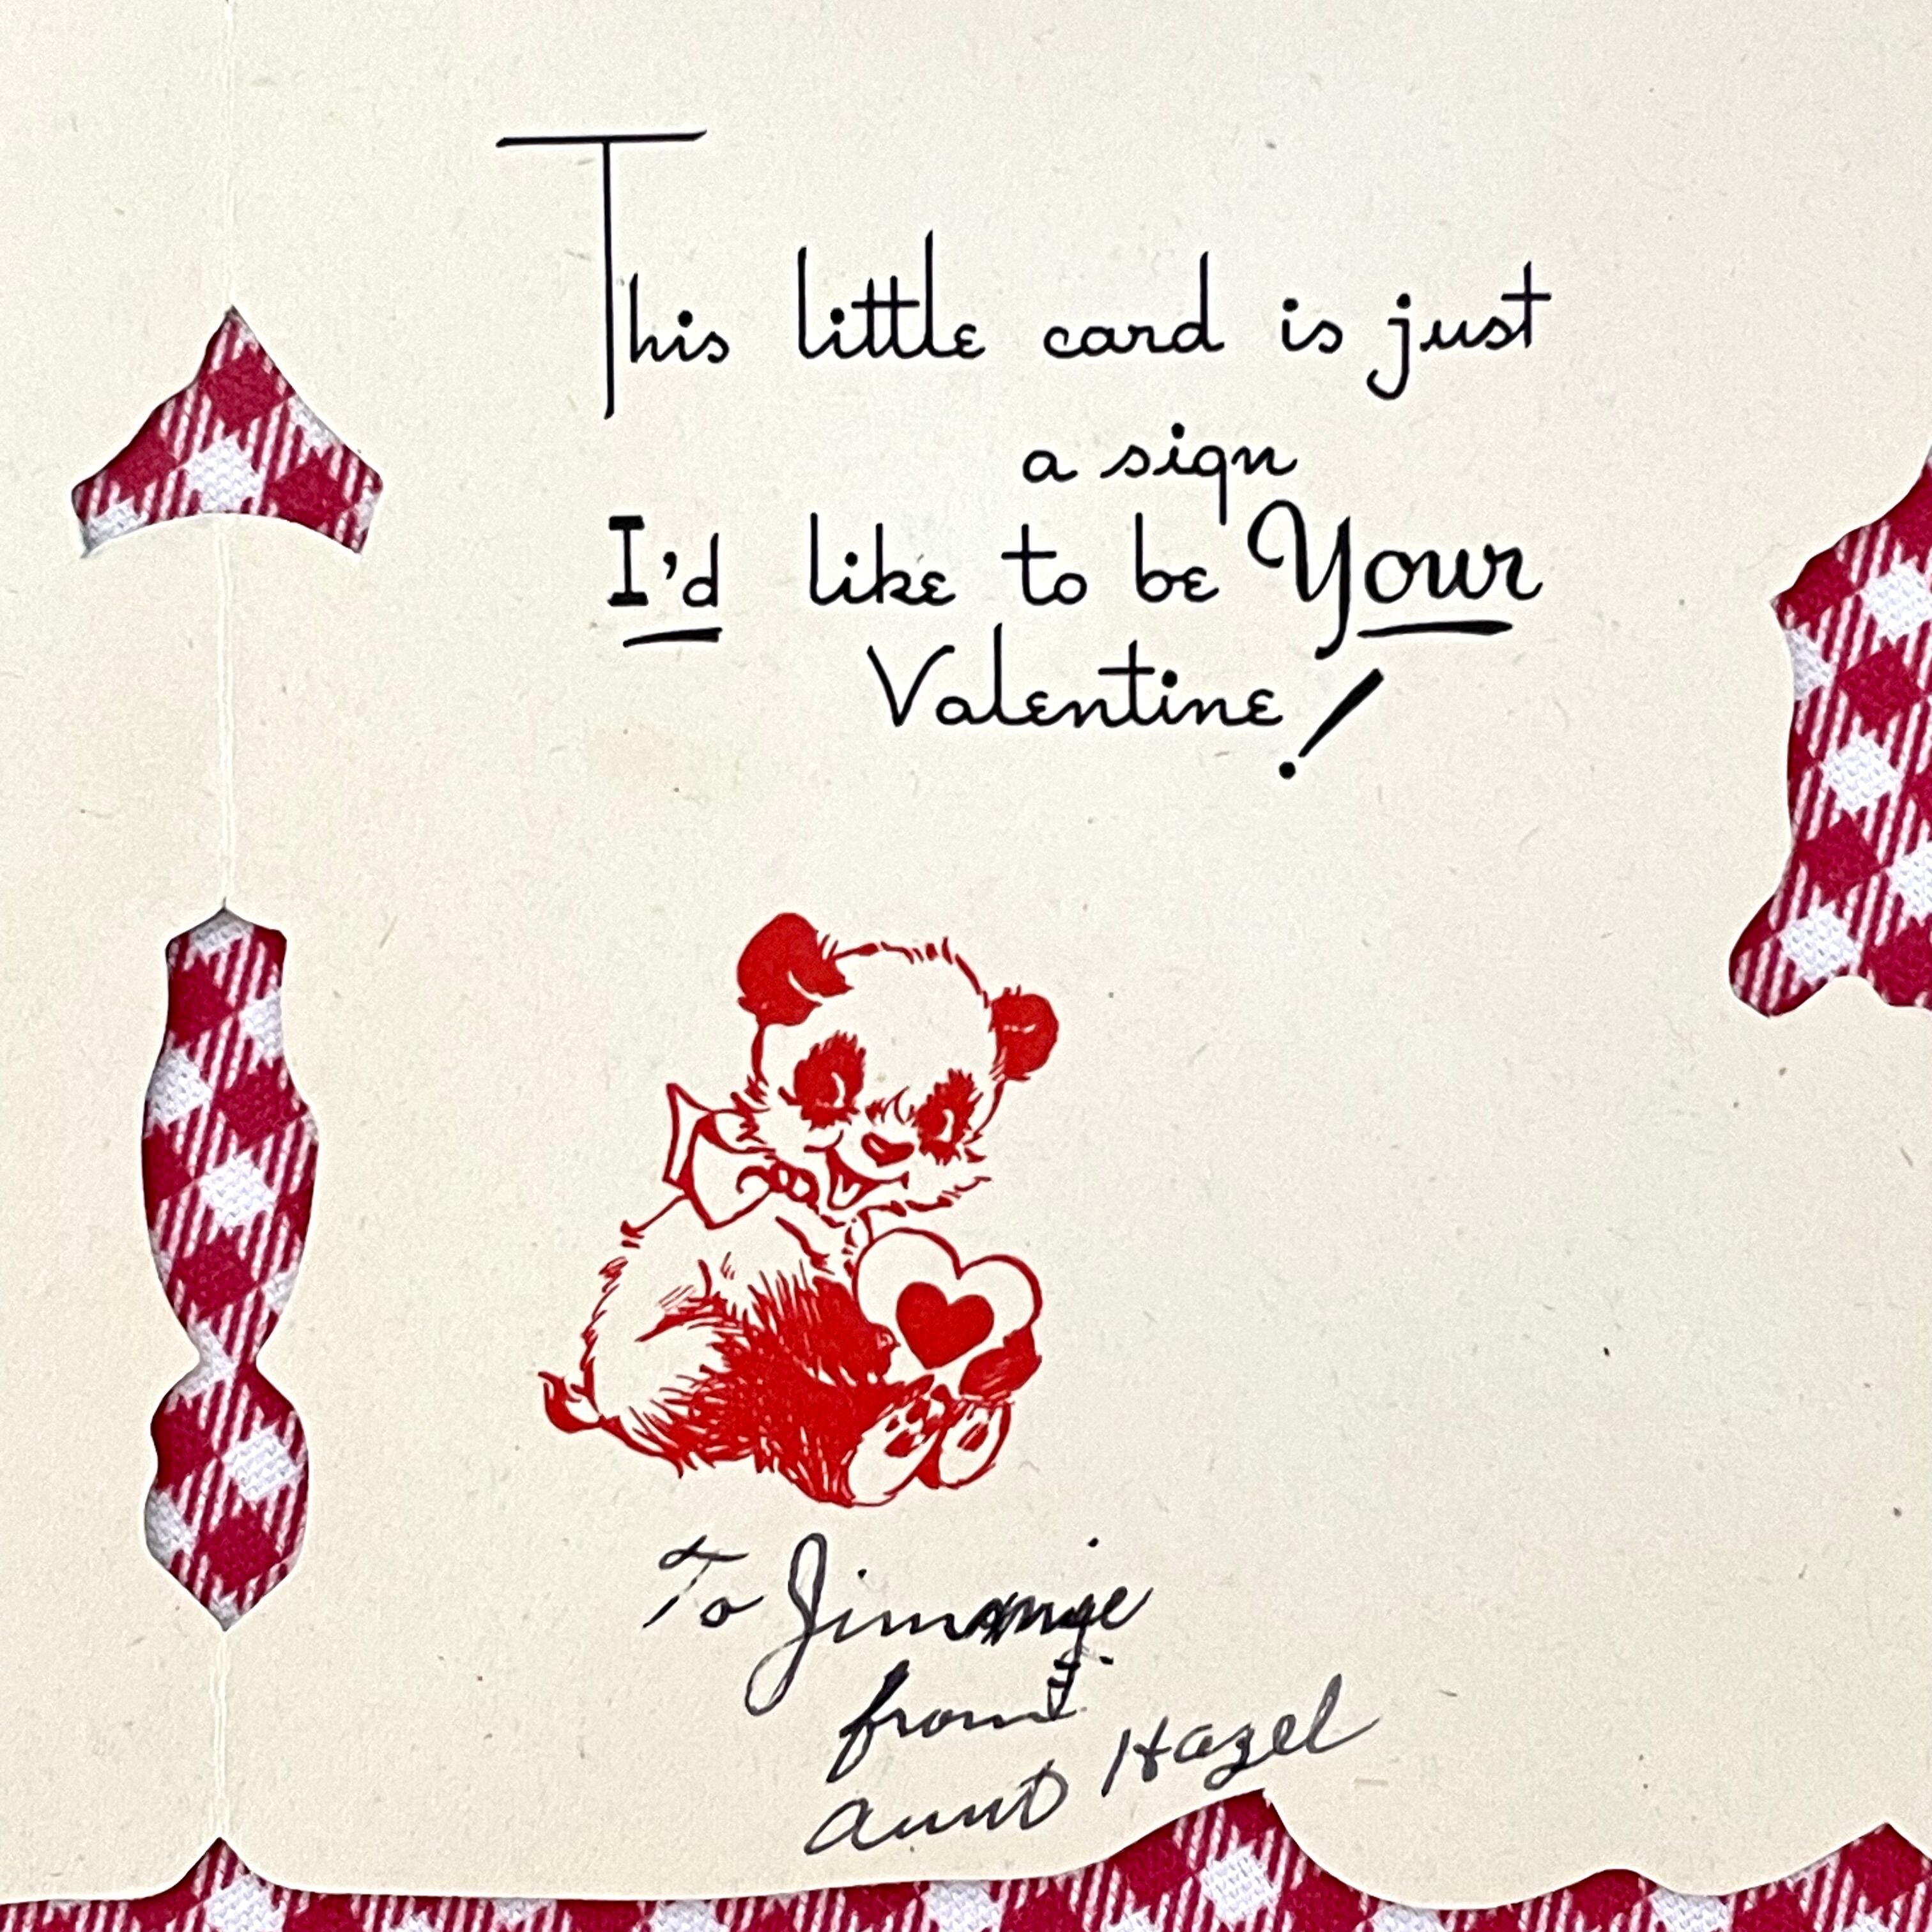 This little card is just
a sign
I'd like to be Your
Valentine!
To Jimmie
from
Aunt Hazel